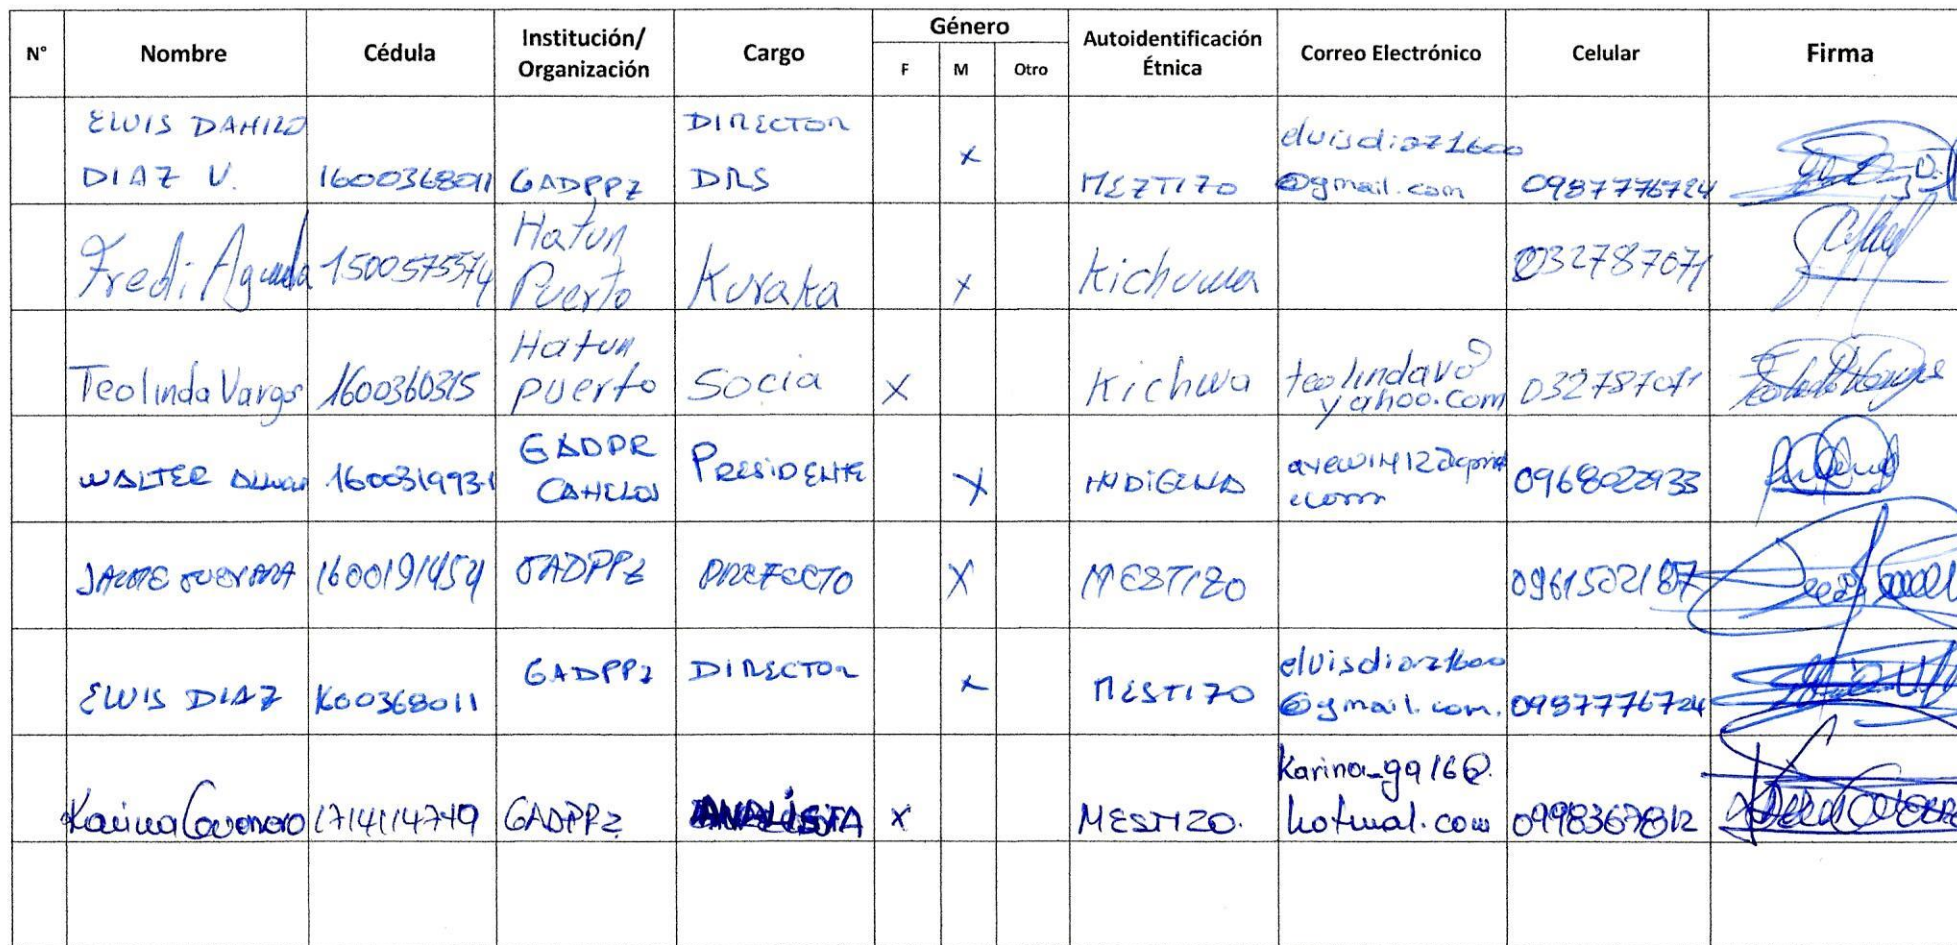 N° Nombre Cédula Institución/ Organización Cargo Género F M Otro Autoidentificación Étnica Correo Electrónico Celular Firma
ELVIS DANILO DIAZ V. 1600368011 GADPPZ DIRECTOR DRS X MEZTIZO elvisdiaz1600@gmail.com 0987776724
Fredi Aguinda 1500575574 Hatun Puerto Kuraka X Kichuwa 032787071
Teolinda Vargas 1600360315 Hatun puerto Socia X Kichwa teolindav@yahoo.com 032787071
WALTER 1600319931 GADPR CANELOS PRESIDENTE X INDIGENA 0968022933
JAIME GUEVARA 1600191454 GADPPZ PREFECTO X MESTIZO 0961502187
ELVIS DIAZ 1600368011 GADPPZ DIRECTOR X MESTIZO elvisdiaz1600@gmail.com. 0987776724
Karina 1714114749 GADPPZ ANALISTA X MESTIZO. karina_gg16@hotmail.com 0998367812